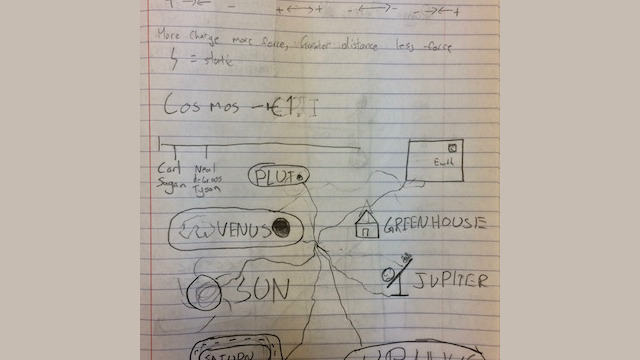 + →← -   +←→+   -←→-   -→←+
More charge more force, Greater distance less force
= static
Cosmos → E1.I
Carl Sagan
Neal deGrass Tyson
PLUTO
Earth
VENUS
GREENHOUSE
SUN
JUPITER
SATURN